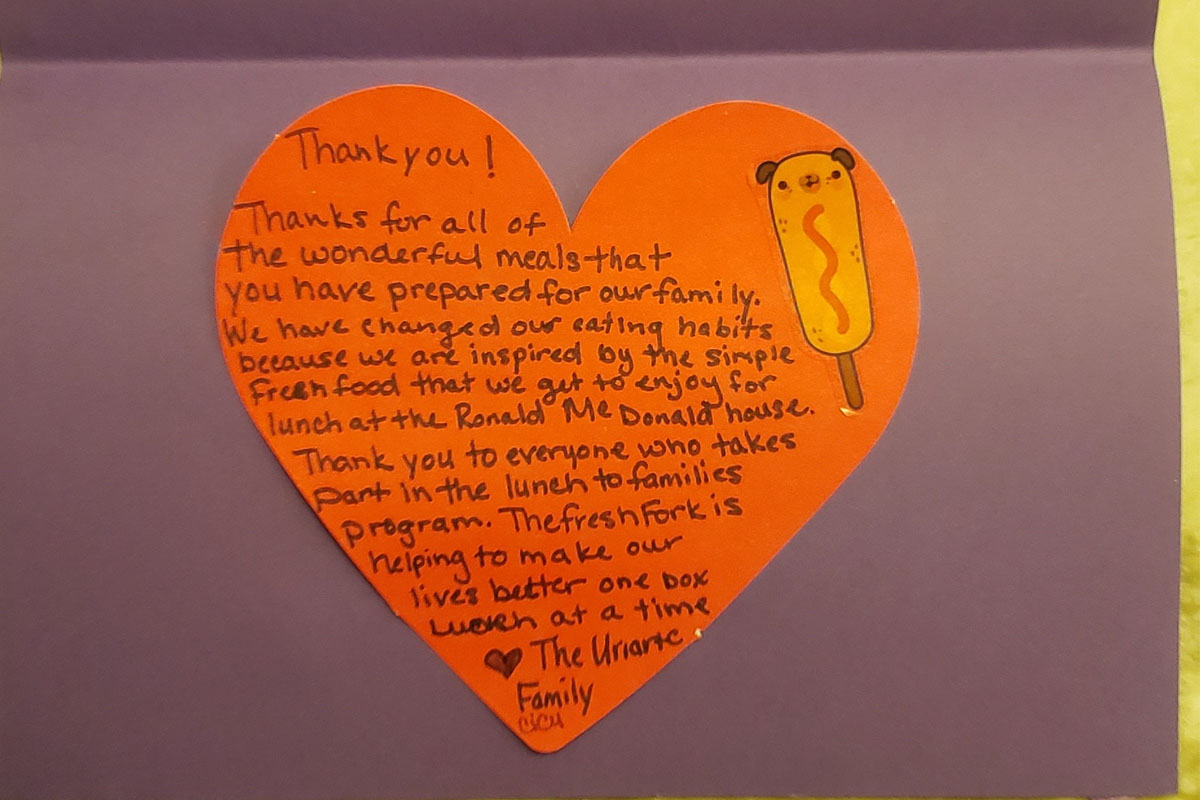 Thank you!
Thanks for all of
the wonderful meals that
you have prepared for our family.
We have changed our eating habits
because we are inspired by the simple
fresh food that we get to enjoy for
lunch at the Ronald McDonald house.
Thank you to everyone who takes
part in the lunch to families
program. The fresh Fork is
helping to make our
lives better one box
lunch at a time
The Uriarte
Family